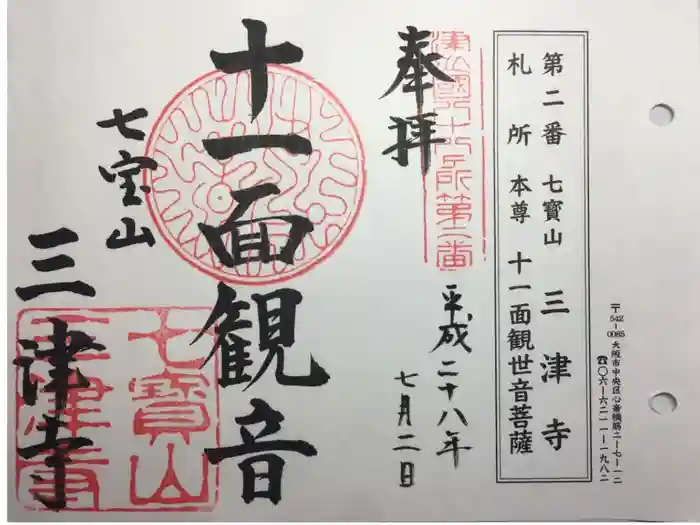 〒542-0085 大阪市中央区心斎橋筋二-七-一二
☎〇六-六二一一-一九八二
第二番 七寳山 三津寺
札所 本尊 十一面観世音菩薩
奉拝
平成二十八年
七月二日
十一面観音
七宝山
三津寺
七寳山
三津寺